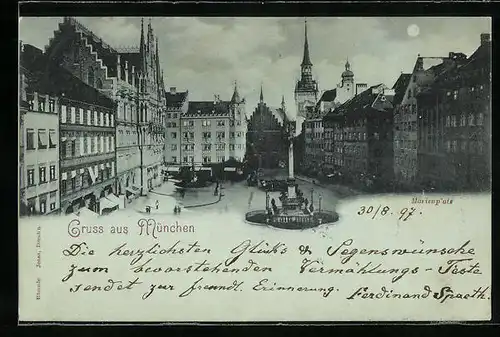 Marienplatz
Gruss aus München
30/8. 97.
Die herzlichsten Glücks & Segenswünsche
zum bevorstehenden Vermählungs-Feste
sendet zur freundl. Erinnerung. Ferdinand Spaeth.